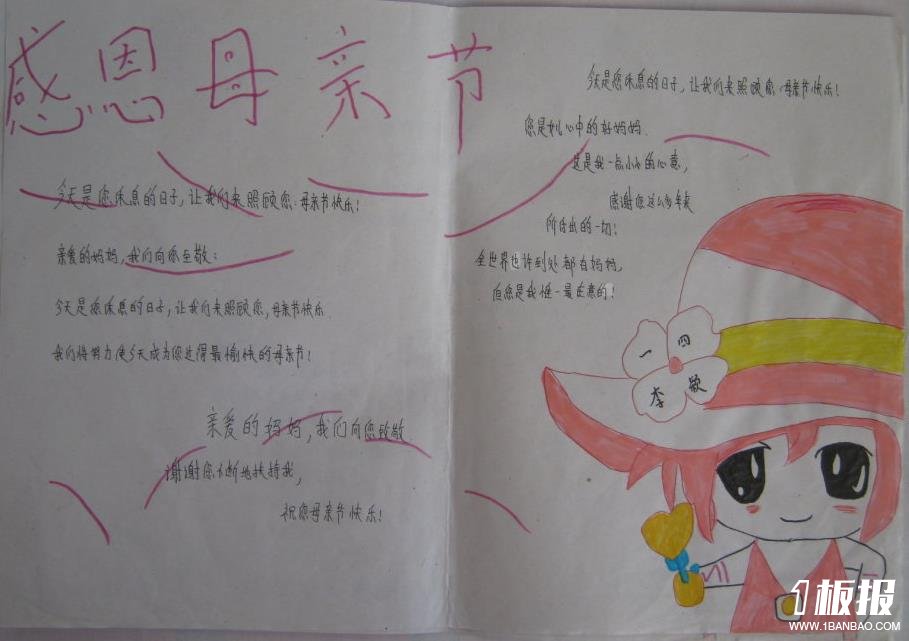 感恩母亲节
今天是您休息的日子，让我们来照顾您：母亲节快乐！
亲爱的妈妈，我们向你至敬：
今天是您休息的日子，让我们来照顾您，母亲节快乐
我们将努力使今天成为你过得最愉快的母亲节！
亲爱的妈妈，我们向您致敬
谢谢您不断地扶持我，
祝您母亲节快乐！
今天是您休息的日子，让我们来照顾您 母亲节快乐！
您是我心中的好妈妈．
这是我一点小小的心意，
感谢您这么多年来
所付出的一切！
全世界也许到处都有妈妈，
但您是我惟一最在意的！
一 四
李 颖
1板报
WWW.1BANBAO.COM